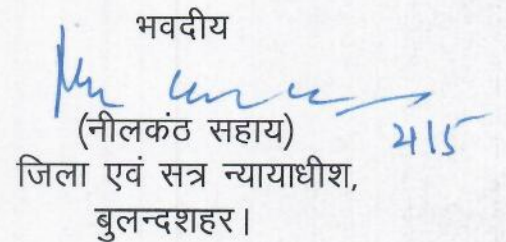 भवदीय
(नीलकंठ सहाय)
जिला एवं सत्र न्यायाधीश,
बुलन्दशहर।